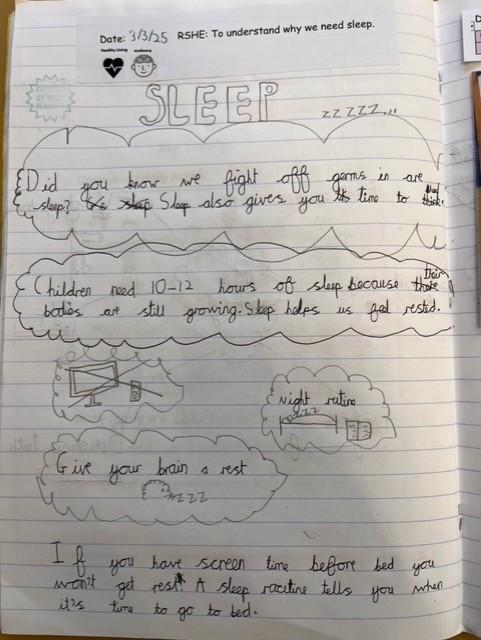 Date: 3/3/25 RSHE: To understand why we need sleep.
Healthy Living Wellbeing
SLEEP zzzzz...
Did you know we fight off germs in are
sleep? Sleep also gives you time to think.
Children need 10-12 hours of sleep because their
bodies are still growing. Sleep helps us feel restid.
Night rutine
zzzz
Give your brain a rest
zzzz
If you have screen time before bed you
won't get rest. A sleep racitine tells you when
it's time to go to bed.